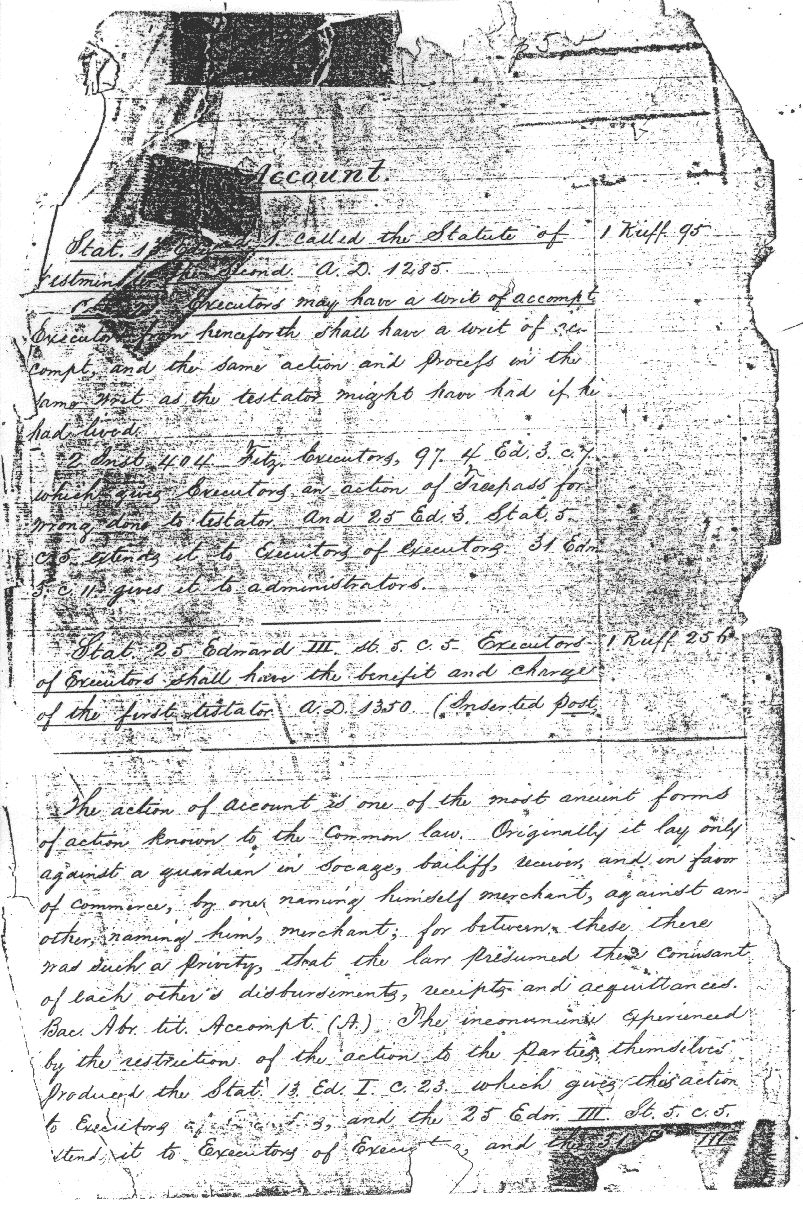 Account.
Stat. 1 called the Statute of 1 Ruff. 95
the Second. A.D. 1285.
Executors may have a writ of accompt
Executors from henceforth shall have a writ of ac-
compt, and the same action and Process in the
same writ as the testator might have had if he
had lived.
2 Inst. 404. Fitz. Executors, 97. 4 Ed. 3. c. 7.
which gives Executors an action of Trespass for
wrong done to testator. And 25 Ed. 3. Stat. 5.
c. 5. extends it to Executors of Executors. 31 Edw.
3. c. 11. gives it to administrators.
Stat. 25 Edward III. st. 5. c. 5. Executors 1 Ruff. 256
of Executors shall have the benefit and charge
of the first testator. A.D. 1350. (Inserted post.
The action of account is one of the most ancient forms
of action known to the Common law. Originally it lay only
against a guardian in socage, bailiff, receiver, and in favor
of commerce, by one, naming himself merchant, against an-
other, naming him, merchant; for between these there
was such a Privity, that the law presumed them conusant
of each other's disbursiments, receipts and acquittances.
Bac. Abr. tit. Accompt. (A.) The experienced
by the restriction of the action to the Parties themselves
Produced the Stat. 13. Ed. I. c. 23. which gives this action
to Executors and the 25 Edw. III. St. 5. c. 5.
it to Executors of and the 31 III